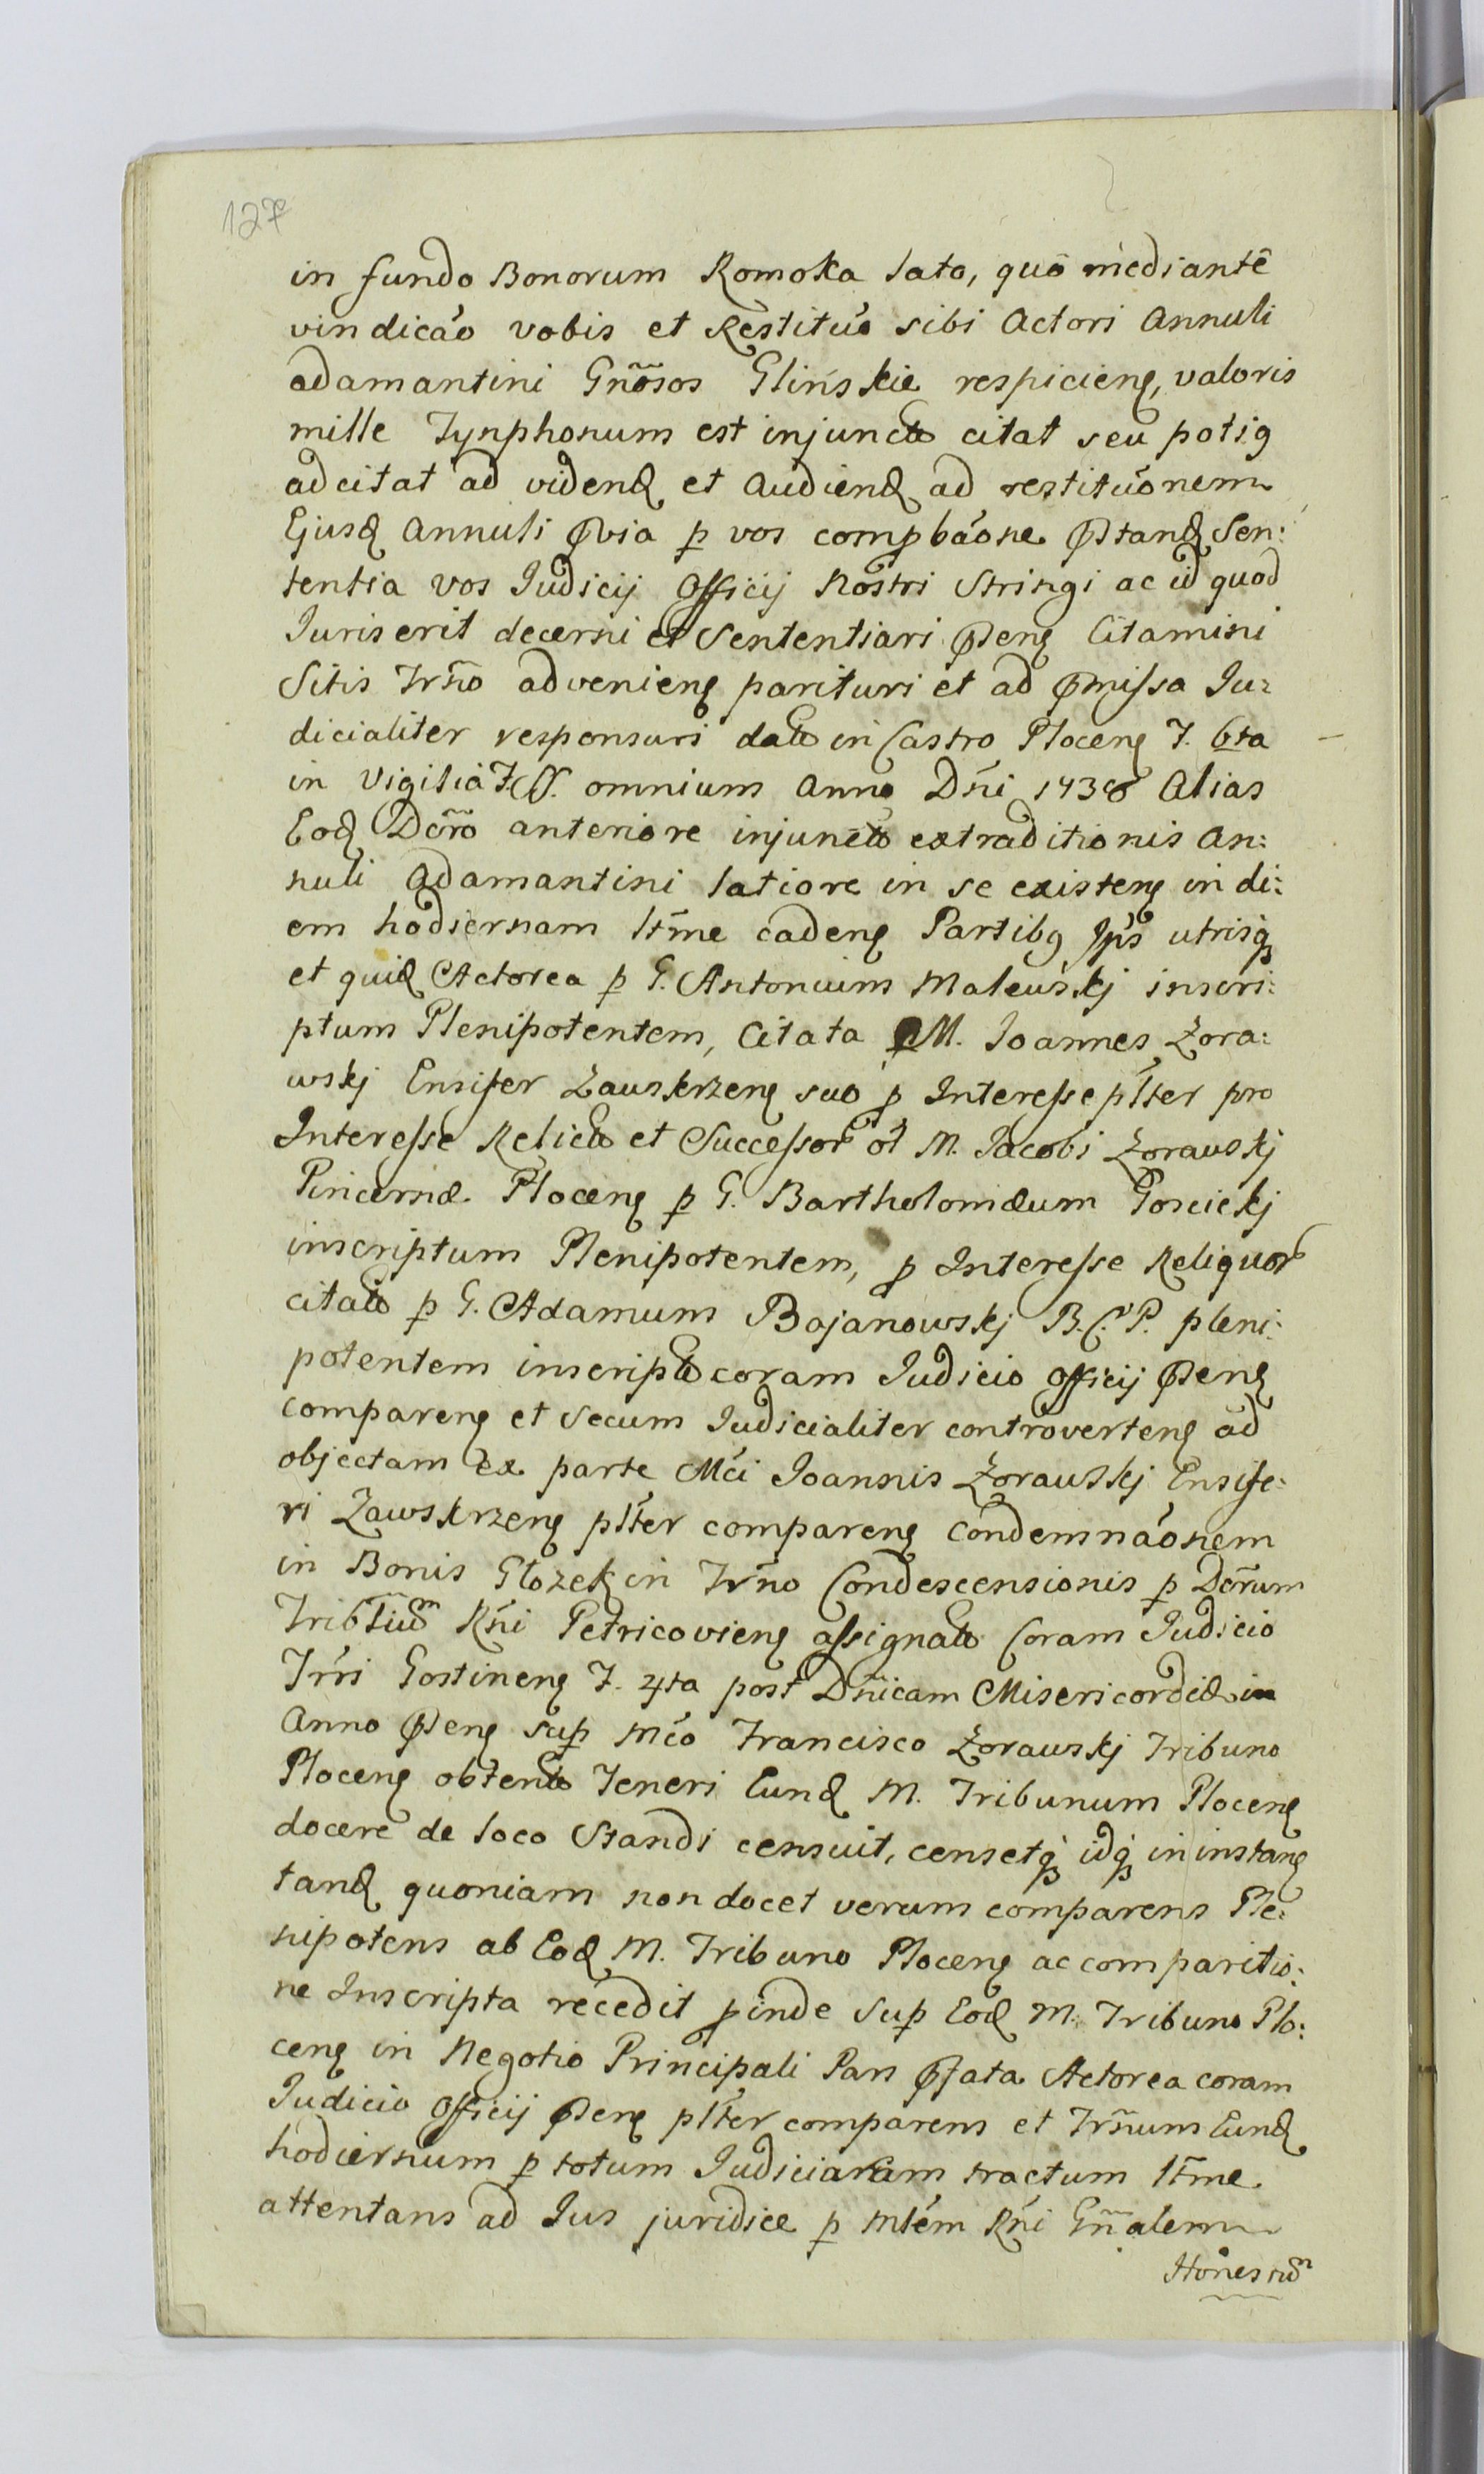 127
in fundo Bonorum Romoka lato, quô mediantê
vindicáo vobis et Restitúo sibi Actori Annuli
adamantini Gnõsos Glinskie respicieng, valoris
mille Tynphonum est injuncta citat seu potig
adcitat ad videnđ et audienđ ad restitúonem
Ejusđ Annuli ꝓvia ꝑ vos compbáone ꝓstanđ Sen:
tentia vos Judicij Officij Nostri Stringi ac id quod
Juris erit decerni et Sententiari ꝓseng Citamini
Sitis Trño advenieng parituri et ad ꝓmissa Ju:
dicialiter responsuri datæ in Castro Ploceng F. 6ta
in Vigilia F. SS. omnium Anno Dñi 1738 Alias
Eođ Dcro anteriore injuncto extraditionis An:
nuli Adamantini latiore in se existeng in di:
em hodiernam ltme cadeng Partibg Ips utrisq
et quiđ Actorea ꝑ G. Antonium Maleuskj inscri:
ptum Plenipotentem, Citata ꝑ M. Joannes Zora:
wskj Ensifer Zauskrzeng suo ꝑ Interesse plter pro
Interesse Relictæ et Successor ol M. Jacobi Zorauskj
Pincernæ Ploceng ꝑ G. Bartholomæum Goscickj
inscriptum Plenipotentem, ꝓ Interesse Reliquor
citato ꝑ G. Adamum Bojanowskj B.C.P. pleni:
potentem inscripto coram Judicio Officij ꝓseng
compareng et secum Judicialiter controverteng ad
objectam ex parte Mci Joannis Zorauskj Ensife:
ri Zawskrzeng plter compareng Condemnáonem
in Bonis Glozek in Trño Condescensionis ꝑ Dcrum
Tribtium Rñi Petricovieng assignato Coram Judicio
Trri Gostineng F. 4ta post Dñicam Misericordiæ in
Anno ꝓseng sup Mco Francisco Zorauskj Tribuno
Ploceng obtento Teneri Eunđ M. Tribunum Ploceng
docere de loco Standi censuit, censetq idq in instang
tanđ quoniam non docet verum comparens Ple:
nipotens ab Eođ M. Tribuno Ploceng ac comparitio:
ne Inscripta recedit ꝓinde Sup Eođ M. Tribuno Plo:
ceng in Negotio Principali Pars ꝓfata Actorea coram
Judicio Officij ꝓseng plter comparens et Trñum Eunđ
hodiernum ꝑ totum Judiciariam tractum ltme
attentans ad Jus juridice ꝑ Mlem Rñi Gñalem
Honestum